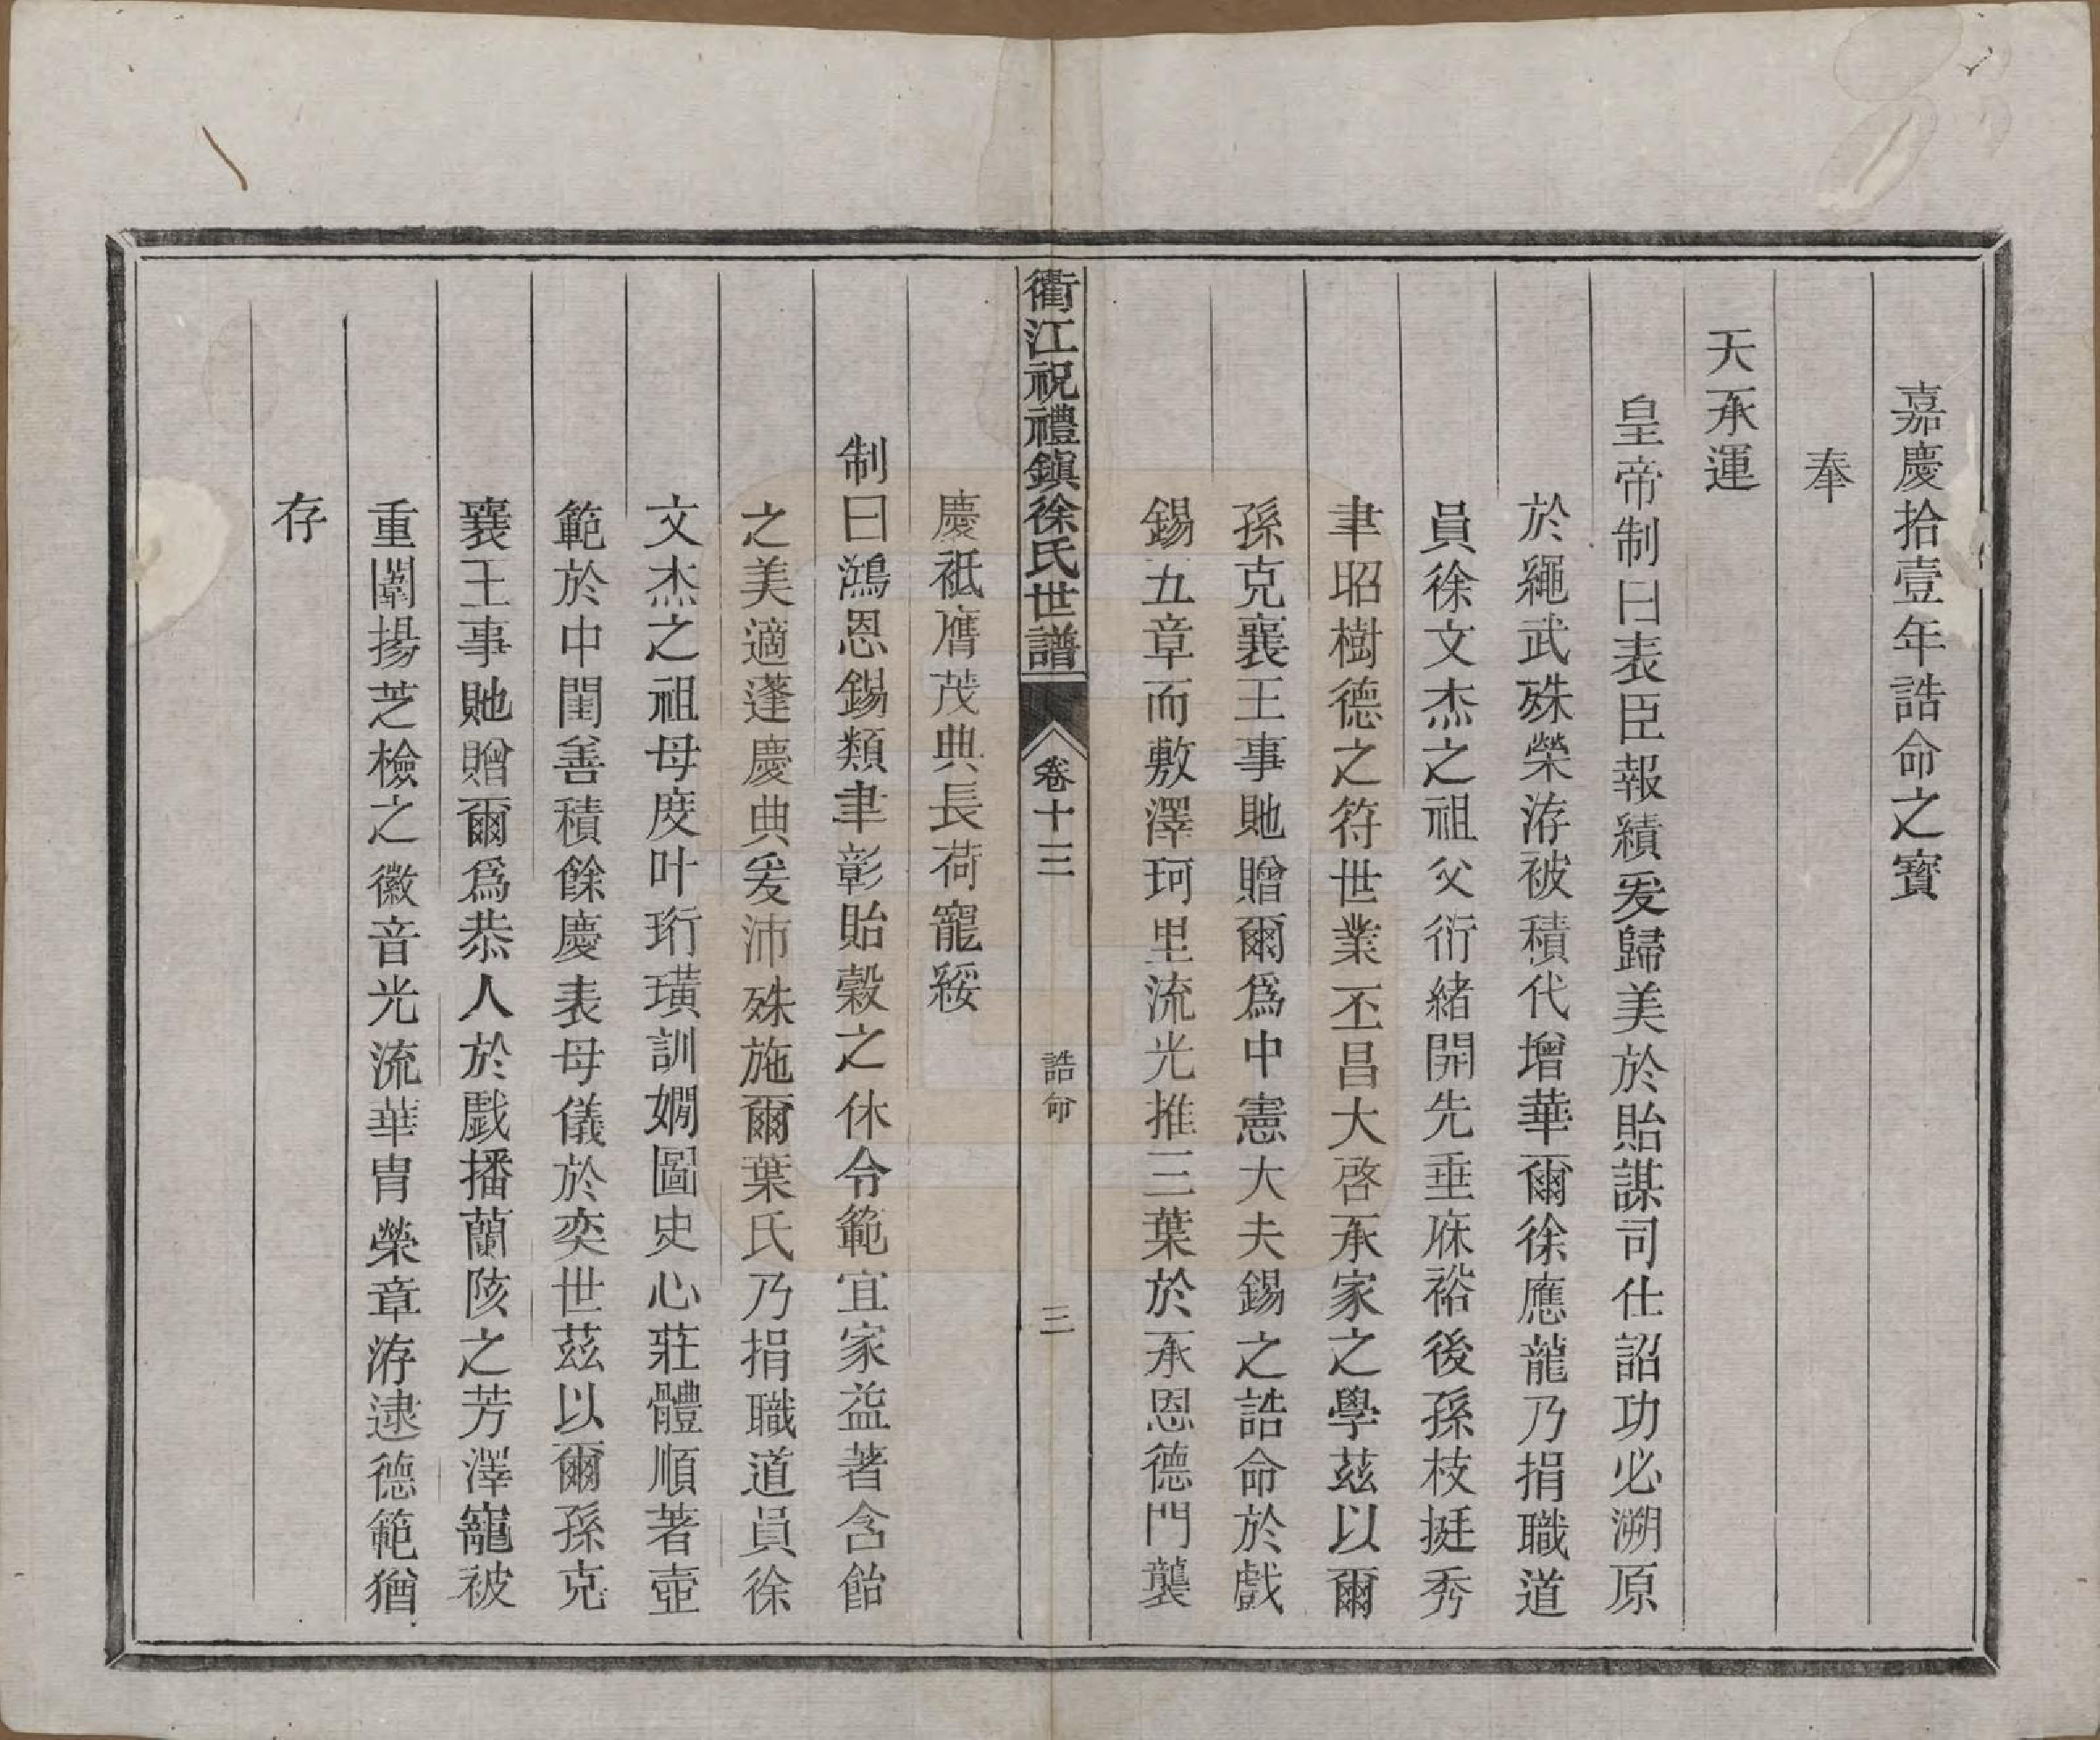 嘉慶拾壹年誥命之寶
奉
天承運
皇帝制曰表臣報績爰歸美於貽謀司仕詔功必溯原
於繩武殊榮洊被積代增華爾徐應龍乃捐職道
員徐文杰之祖父衍緒開先垂庥裕後孫枝挺秀
聿昭樹德之符世業丕昌大啓承家之學茲以爾
孫克襄王事貤贈爾爲中憲大夫錫之誥命於戲
錫五章而敷澤珂里流光推三葉於承恩德門襲
衢江祝禮鎭徐氏世譜
卷十三
誥命
三
慶祗膺茂典長荷寵綏
制曰鴻恩錫類聿彰貽穀之休令範宜家益著含飴
之美適逢慶典爰沛殊施爾葉氏乃捐職道員徐
文杰之祖母度叶珩璜訓嫺圖史心莊體順著壼
範於中閨善積餘慶表母儀於奕世茲以爾孫克
襄王事貤贈爾爲恭人於戲播蘭陔之芳澤寵被
重闈揚芝檢之徽音光流華冑榮章洊逮德範猶
存